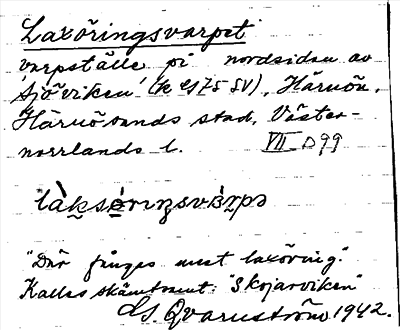 Laxöringsvarpet
varpställe på nordsidan av
'Sjöviken' (k 4/75 SV), Härnön,
Härnösands stad, Väster-
norrlands l. VII D99
"Där fånges mest laxöring."
Kallas skämtsamt: "Skojarviken"
G. Qvarnström 1942.